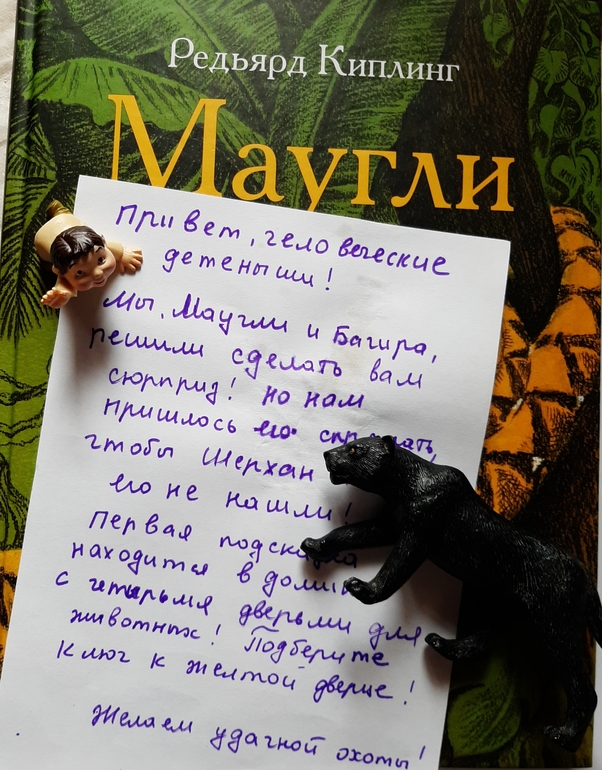 Редьярд Киплинг
Маугли
Привет, человеческие
детеныши!
Мы, Маугли и Багира,
решили сделать вам
сюрприз! Но нам
пришлось его спрятать,
чтобы Шерхан
его не нашли!
Первая подсказка
находится в домике
с четырьмя дверьми для
животных! Подберите
ключ к желтой дверце!
Желаем удачной охоты!